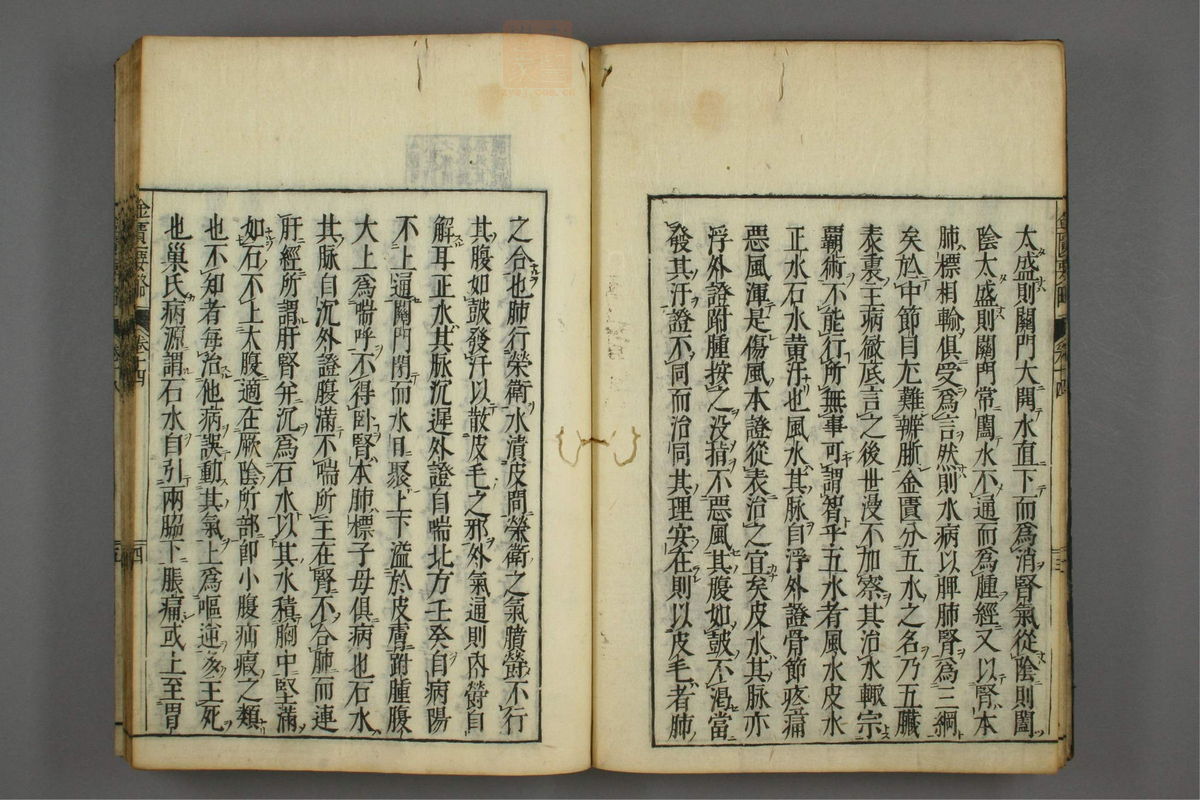 太盛則關門大開水直下而爲消腎氣從陰則闔
陰太盛則關門常闔水不通而爲腫經又以腎本
肺標相輸俱受爲言然則水病以脾肺腎爲三綱
矣於中節目尤難辨晰金匱分五水之名乃五臟
表裏主病徹底言之後世漫不加察其治水輙宗
霸術不能行所無事可謂智乎五水者風水皮水
正水石水黄汗也風水其脉自浮外證骨節疼痛
惡風渾是傷風本證從表治之宜矣皮水其脉亦
浮外證跗腫按之没指不惡風其腹如鼓不渴當
發其汗證不同而治同其理安在則以皮毛者肺
之合也肺行榮衛水漬皮間榮衛之氣膹欝不行
其腹如鼓發汗以散皮毛之邪外氣通則内欝自
解耳正水其脉沉遲外證自喘北方壬癸自病陽
不上通關門閉而水日聚上下溢於皮膚跗腫腹
大上爲喘呼不得卧腎本肺標子母俱病也石水
其脉自沉外證腹滿不喘所主在腎不合肺而連
肝經所謂肝腎并沉爲石水以其水積胸中堅滿
如石不上大腹適在厥陰所部卽小腹疝瘕之類
也不知者每治他病誤動其氣上爲嘔逆多主死
也巢氏病源謂石水自引兩脇下脹痛或上至胃
金匱要略
卷二十四
四